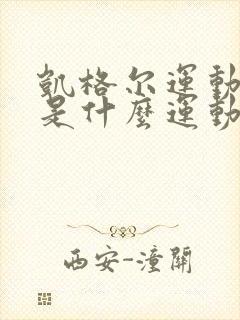 凱格尔運動
是什麼運動
西安-潼關